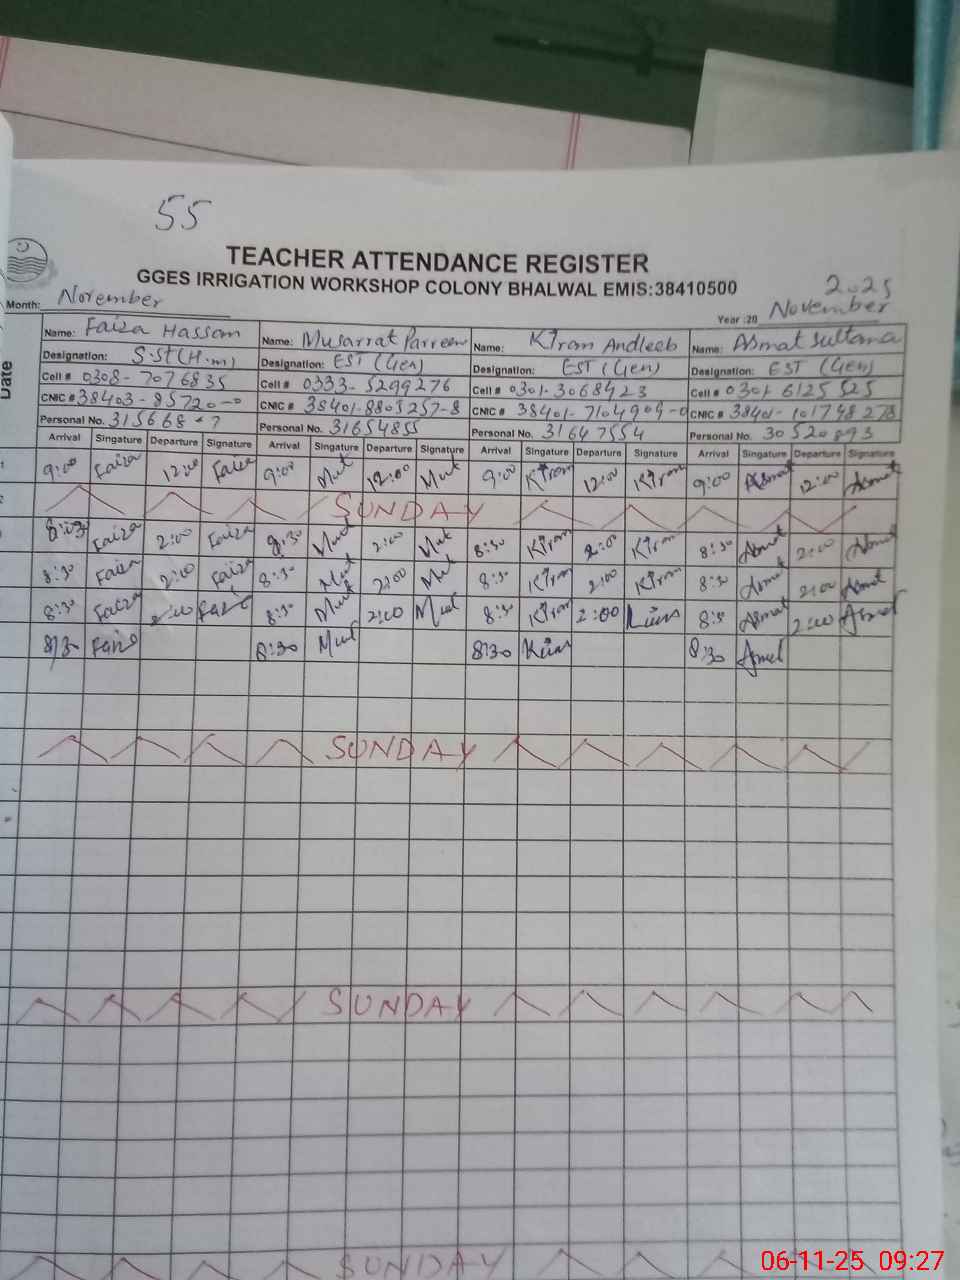 55
TEACHER ATTENDANCE REGISTER
GGES IRRIGATION WORKSHOP COLONY BHALWAL EMIS:38410500
2025
Month: November Year :20 November
Date
Name: Faiza Hassan Name: Musarrat Parveen Name: Kiran Andleeb Name: Asmat Sultana
Designation: S.St (H.m) Designation: EST (Gen) Designation: EST (Gen) Designation: EST (Gen)
Cell # 0308-7076835 Cell # 0333-5299276 Cell # 0301-3068423 Cell # 0301 6125525
CNIC # CNIC # CNIC # CNIC #
Personal No. Personal No. 31654855 Personal No. 31647554 Personal No. 30520893
Arrival Singature Departure Signature Arrival Singature Departure Signature Arrival Singature Departure Signature Arrival Singature Departure Signature
1 9:00 Faiza 12:00 Faiza 9:00 Mut 12:00 Mut 9:00 Kiran 12:00 Kiran 9:00 Asmat 12:00 Asmat
2 SUNDAY
Faiza 2:00 Faiza 8:30 Mut 2:00 Mut 8:30 Kiran 2:00 Kiran 8:30 Asmat 2:00 Asmat
8:30 Faiza 2:00 Faiza 8:30 Mut 2:00 Mut 8:30 Kiran 2:00 Kiran 8:30 Asmat 2:00 Asmat
8:30 Faiza 2:00 Faiza 8:30 Mut 2:00 Mut 8:30 Kiran 2:00 Asmat 2:00 Asmat
8:30 Faiza 8:30 Mut 8:30 8:30 Asmat
SUNDAY
SUNDAY
SUNDAY
06-11-25 09:27